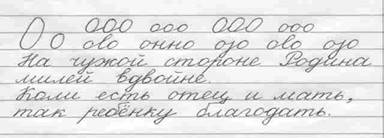 О о ООО ооо ООО ооо
ово онно ојо ово ојо
На чужой стороне Родина
милей вдвойне.
Коли есть отец и мать,
так ребёнку благодать.